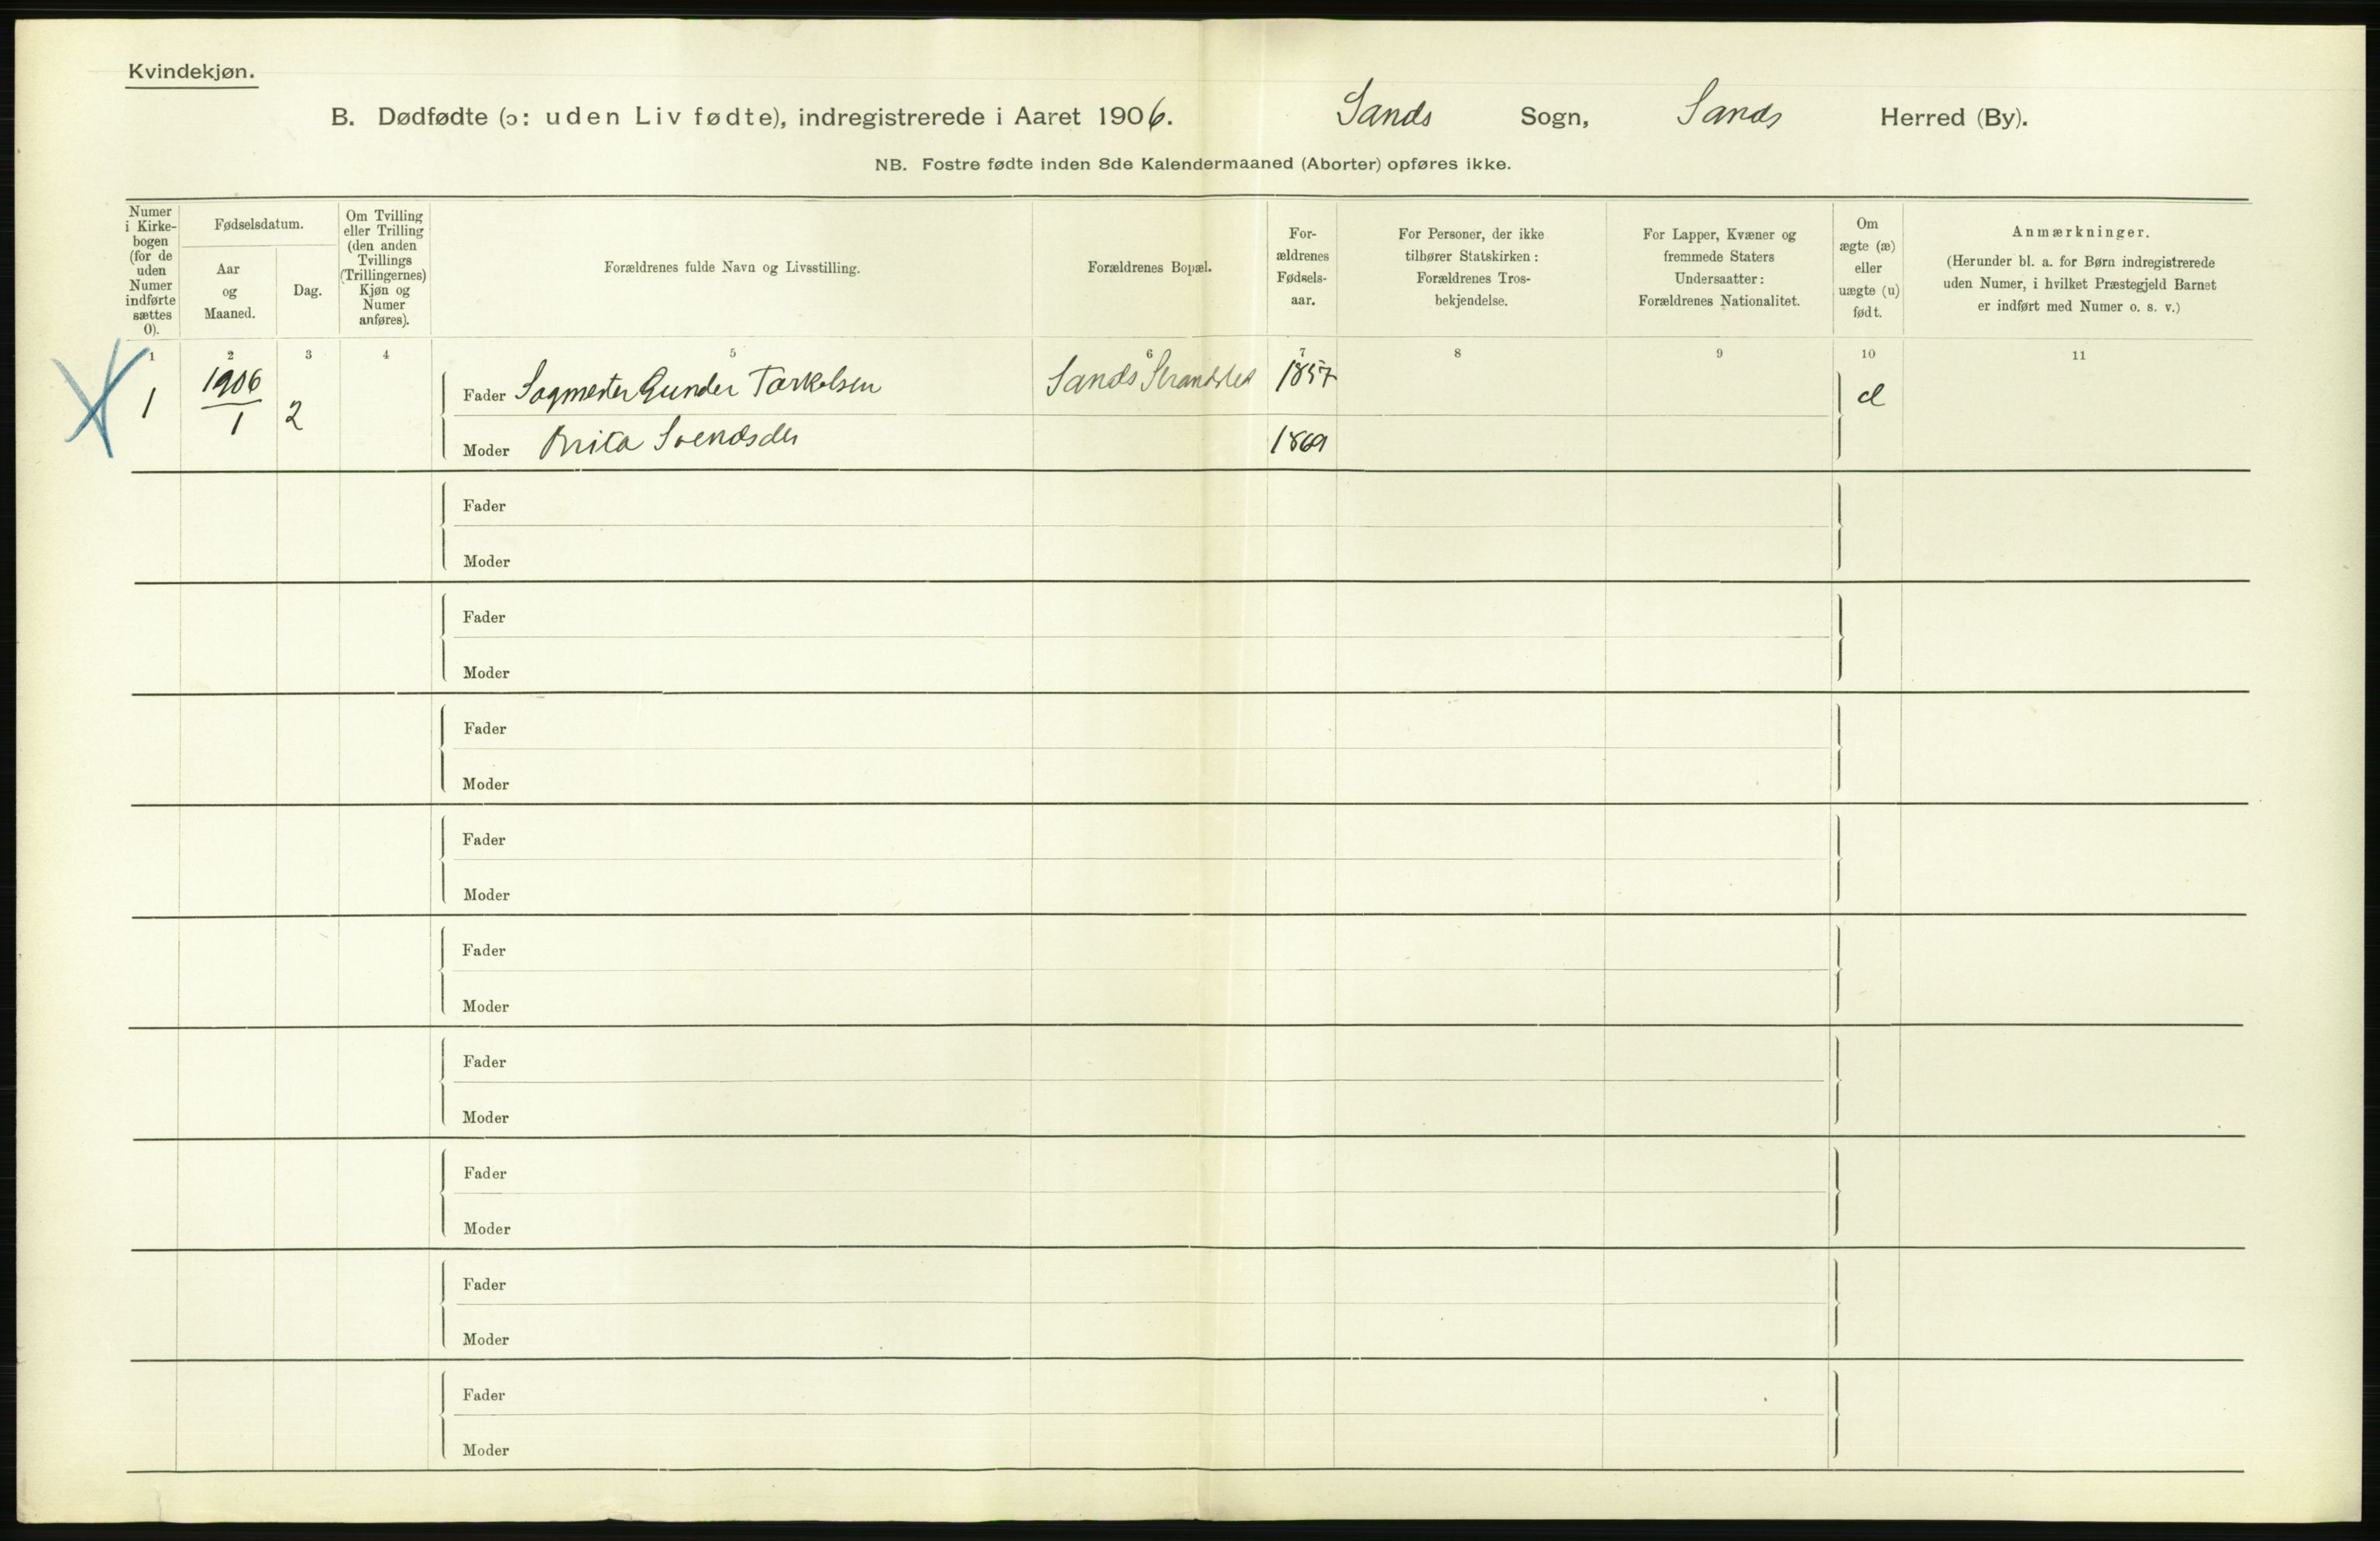 Kvindekjøn.
B. Dødfødte (ɔ: uden Liv fødte), indregistrerede i Aaret 1906. Sands Sogn, Sands Herred (By).
NB. Fostre fødte inden 8de Kalendermaaned (Aborter) opføres ikke.
Numer
i Kirke-
bogen
(for de
uden
Numer
indførte
sættes
0).
Fødselsdatum.
Aar
og
Maaned.
Dag.
Om Tvilling
eller Trilling
(den anden
Tvillings
(Trillingernes)
Kjøn og
Numer
anføres).
Forældrenes fulde Navn og Livsstilling.
Forældrenes Bopæl.
For-
ældrenes
Fødsels-
aar.
For Personer, der ikke
tilhører Statskirken:
Forældrenes Tros-
bekjendelse.
For Lapper, Kvæner og
fremmede Staters
Undersaatter:
Forældrenes Nationalitet.
Om
ægte (æ)
eller
uægte (u)
født.
Anmærkninger.
(Herunder bl. a. for Børn indregistrerede
uden Numer, i hvilket Præstegjeld Barnet
er indført med Numer o. s. v.)
1 2 3 4 5 6 7 8 9 10 11
1 1906/1 2 Fader Sagmester Gunder Torkelsen Sands Strandsted 1857 æ
Moder Brita Svendsdtr 1869
Fader
Moder
Fader
Moder
Fader
Moder
Fader
Moder
Fader
Moder
Fader
Moder
Fader
Moder
Fader
Moder
Fader
Moder